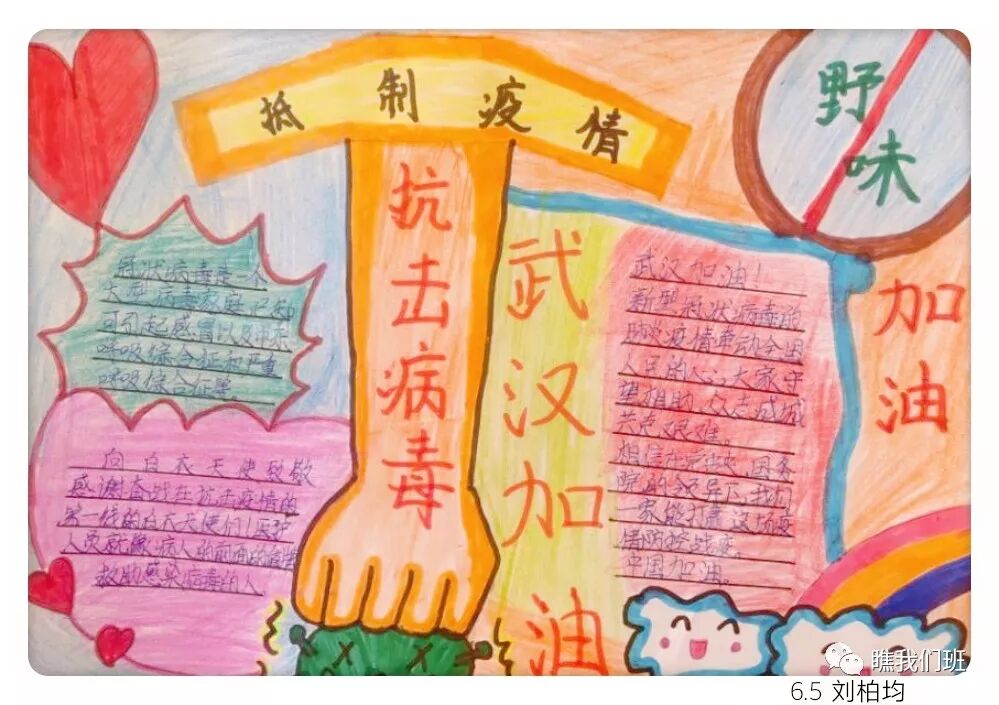 抵制疫情
野味
抗击病毒
武汉加油
加油
冠状病毒是一个
大型病毒家族已知
可引起感冒以及中东
呼吸综合征和严重
呼吸综合征等。
向白衣天使致敬
感谢奋战在抗击疫情的
第一线的白衣天使们！医护
人员就像病人
救助感染病毒的人
武汉加油！
新型冠状病毒的
肺炎疫情牵动全国
人民的心，大家守
望相助，众志成城
共克艰难。
相信在党中央、国务
院的领导下，我们
一定能打赢这场疫
情防控战疫。
中国加油。
瞧我们班
6.5 刘柏均